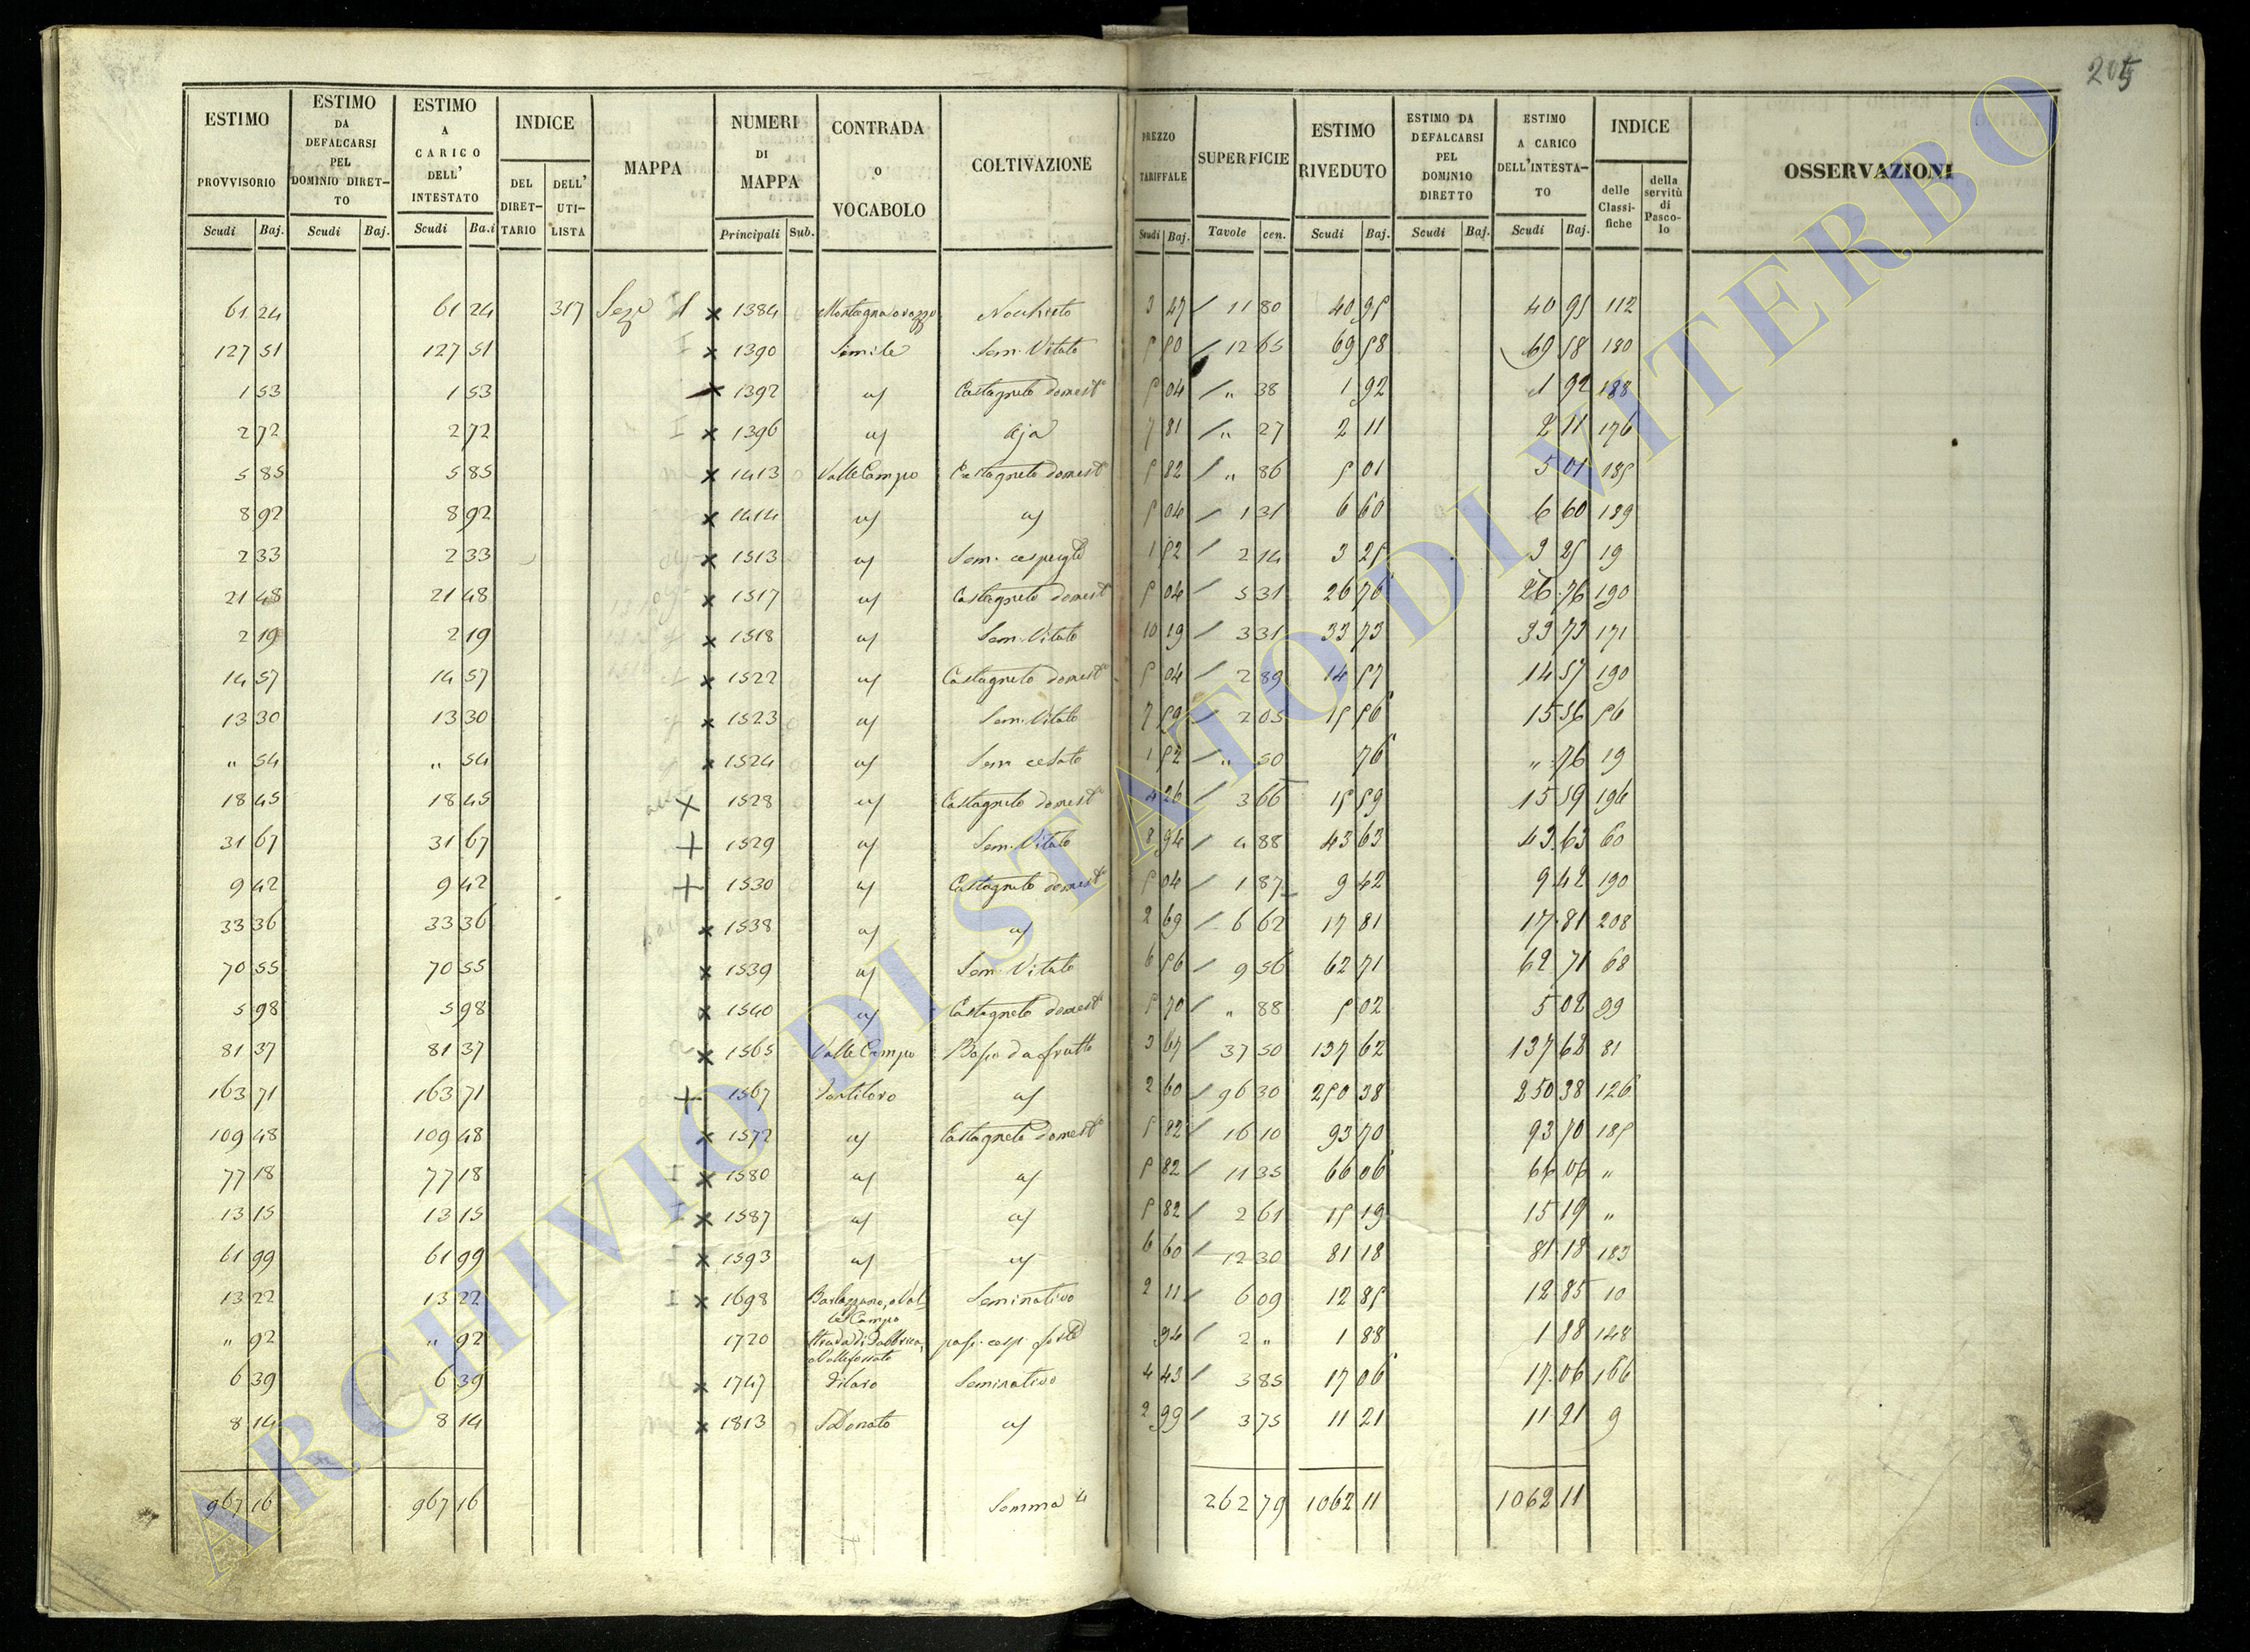 205
ESTIMO PROVVISORIO Scudi Baj.
ESTIMO DA DEFALCARSI PEL DOMINIO DIRET- TO Scudi Baj.
ESTIMO A CARICO DELL' INTESTATO Scudi Ba.i
INDICE DEL DIRET- TARIO DELL' UTI- LISTA
MAPPA
NUMERI DI MAPPA Principali Sub.
CONTRADA o VOCABOLO
COLTIVAZIONE
PREZZO TARIFFALE Scudi Baj.
SUPERFICIE Tavole cen.
ESTIMO RIVEDUTO Scudi Baj.
ESTIMO DA DEFALCARSI PEL DOMINIO DIRETTO Scudi Baj.
ESTIMO A CARICO DELL'INTESTA- TO Scudi Baj.
INDICE delle Classi- fiche della servitù di Pasco- lo
OSSERVAZIONI
61 24 61 24 317 Sez. I x 1384 Nocchieto 3 47 / 11 80 40 95 40 95 112
127 51 127 51 x 1390 Simile Sem. Vitato 5 50 / 12 65 69 58 69 58 180
1 53 1 53 x 1392 a/ Castagneto domest. 5 04 / " 38 1 92 1 92 188
2 72 2 72 x 1396 a/ Aja 7 81 / " 27 2 11 2 11 176
5 85 5 85 x 1413 Valle Campo Castagneto domest. 5 82 / " 86 5 01 5 01 185
8 92 8 92 x 1414 a/ a/ 5 04 / 1 31 6 60 6 60 189
2 33 2 33 x 1513 a/ Sem. 1 52 / 2 14 3 25 3 25 19
21 48 21 48 x 1517 a/ Castagneto domest. 5 04 / 5 31 26 76 26 76 190
2 19 2 19 x 1518 a/ Sem. Vitato 10 19 / 3 31 33 73 33 73 171
14 57 14 57 x 1522 a/ Castagneto domest. 5 04 / 2 89 14 57 14 57 190
13 30 13 30 x 1523 a/ Sem. Vitato 7 59 / 2 05 15 56 15 56 56
" 54 " 54 x 1524 a/ Sem. 1 52 / " 50 76 " 76 19
18 45 18 45 x 1528 a/ Castagneto domest. 4 26 / 3 66 15 59 15 59 196
31 67 31 67 + 1529 a/ Sem. Vitato 8 94 / 4 88 43 63 43 63 60
9 42 9 42 + 1530 a/ Castagneto domest. 5 04 / 1 87 9 42 9 42 190
33 36 33 36 x 1538 a/ a/ 2 69 / 6 62 17 81 17 81 208
70 55 70 55 x 1539 a/ Sem. Vitato 6 56 / 9 56 62 71 62 71 68
5 98 5 98 x 1540 a/ Castagneto domest. 5 70 / " 88 5 02 5 02 99
81 37 81 37 x 1565 Valle Campo Bosco da frutto 3 67 / 37 50 137 62 137 62 81
163 71 163 71 + 1567 a/ 2 60 / 96 30 250 38 250 38 126
109 48 109 48 x 1572 a/ Castagneto domest. 5 82 / 16 10 93 70 93 70 185
77 18 77 18 x 1580 a/ a/ 5 82 / 11 35 66 06 66 06 "
13 15 13 15 x 1587 a/ a/ 5 82 / 2 61 15 19 15 19 "
61 99 61 99 x 1593 a/ a/ 6 60 / 12 30 81 18 81 18 183
13 22 13 22 x 1698 Seminativo 2 11 / 6 09 12 85 12 85 10
" 92 " 92 1720 Strada di 94 / 2 " 1 88 1 88 148
6 39 6 39 x 1747 Seminativo 4 43 / 3 85 17 06 17 06 166
8 14 8 14 x 1813 S. Donato a/ 2 99 / 3 75 11 21 11 21 9
967 16 967 16 Somma 262 79 1062 11 1062 11
ARCHIVIO DI STATO DI VITERBO